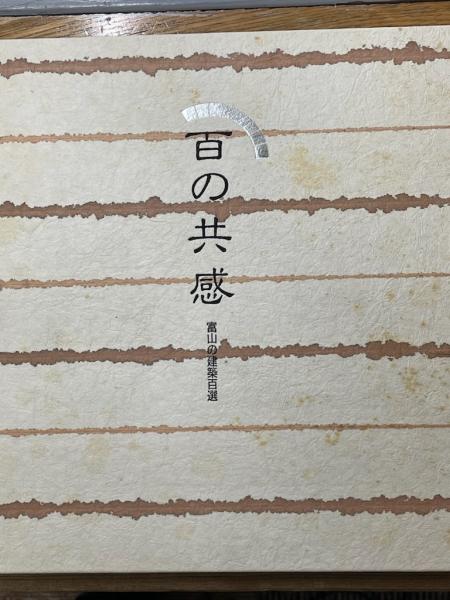 百の共感
富山の建築百選